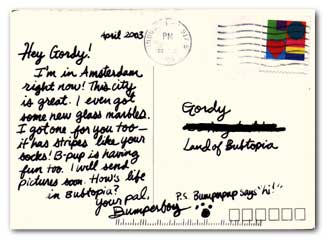 April 2003
Hey Gordy!
I'm in Amsterdam
right now! This city
is great. I even got
some new glass marbles.
I got one for you too—
it has stripes like your
socks! B-pup is having
fun too. I will send
pictures soon. How's life
in Bubtopia?
Your pal,
Bumperboy
Gordy
Land of Bubtopia
P.S. Bumperpup says "hi!"